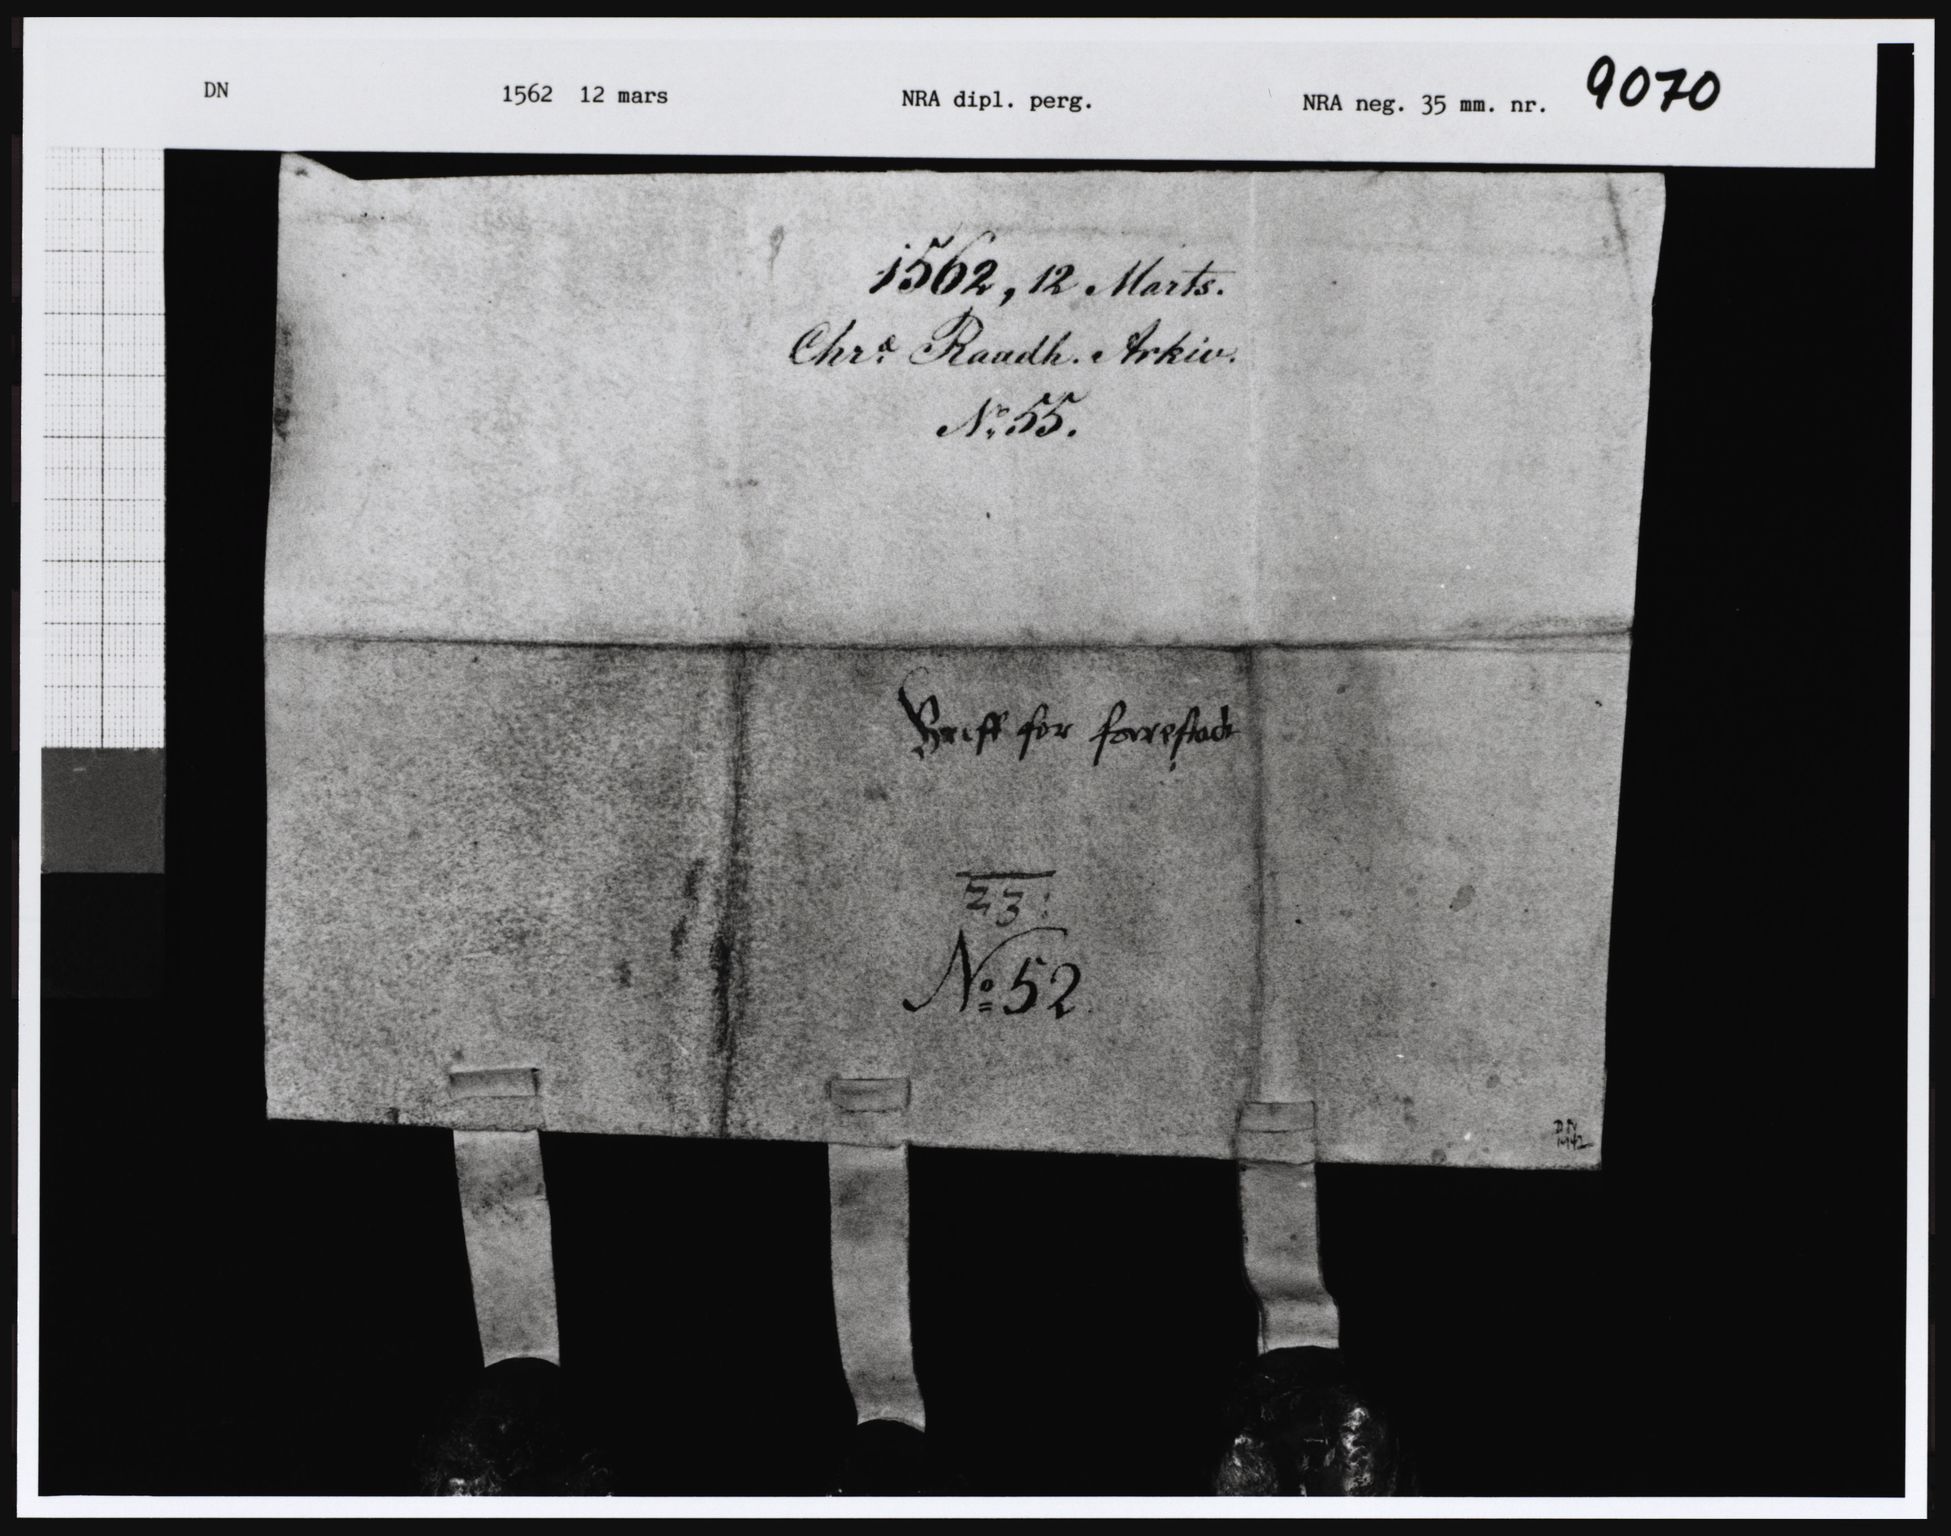 DN 1562 12 mars NRA dipl. perg. NRA neg. 35 mm. nr. 9070
1562, 12 Marts.
Chr.a Raadh. Arkiv.
No. 55.
Breff for farestadt
23:
No 52
DN
1942